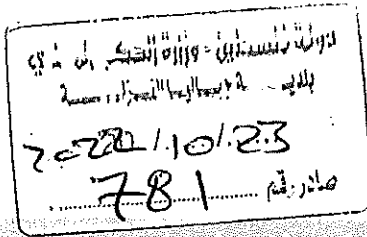 دولة فلسطين - وزارة الحكم المحلي
بلدية
2022/10/23
صادر رقم 781